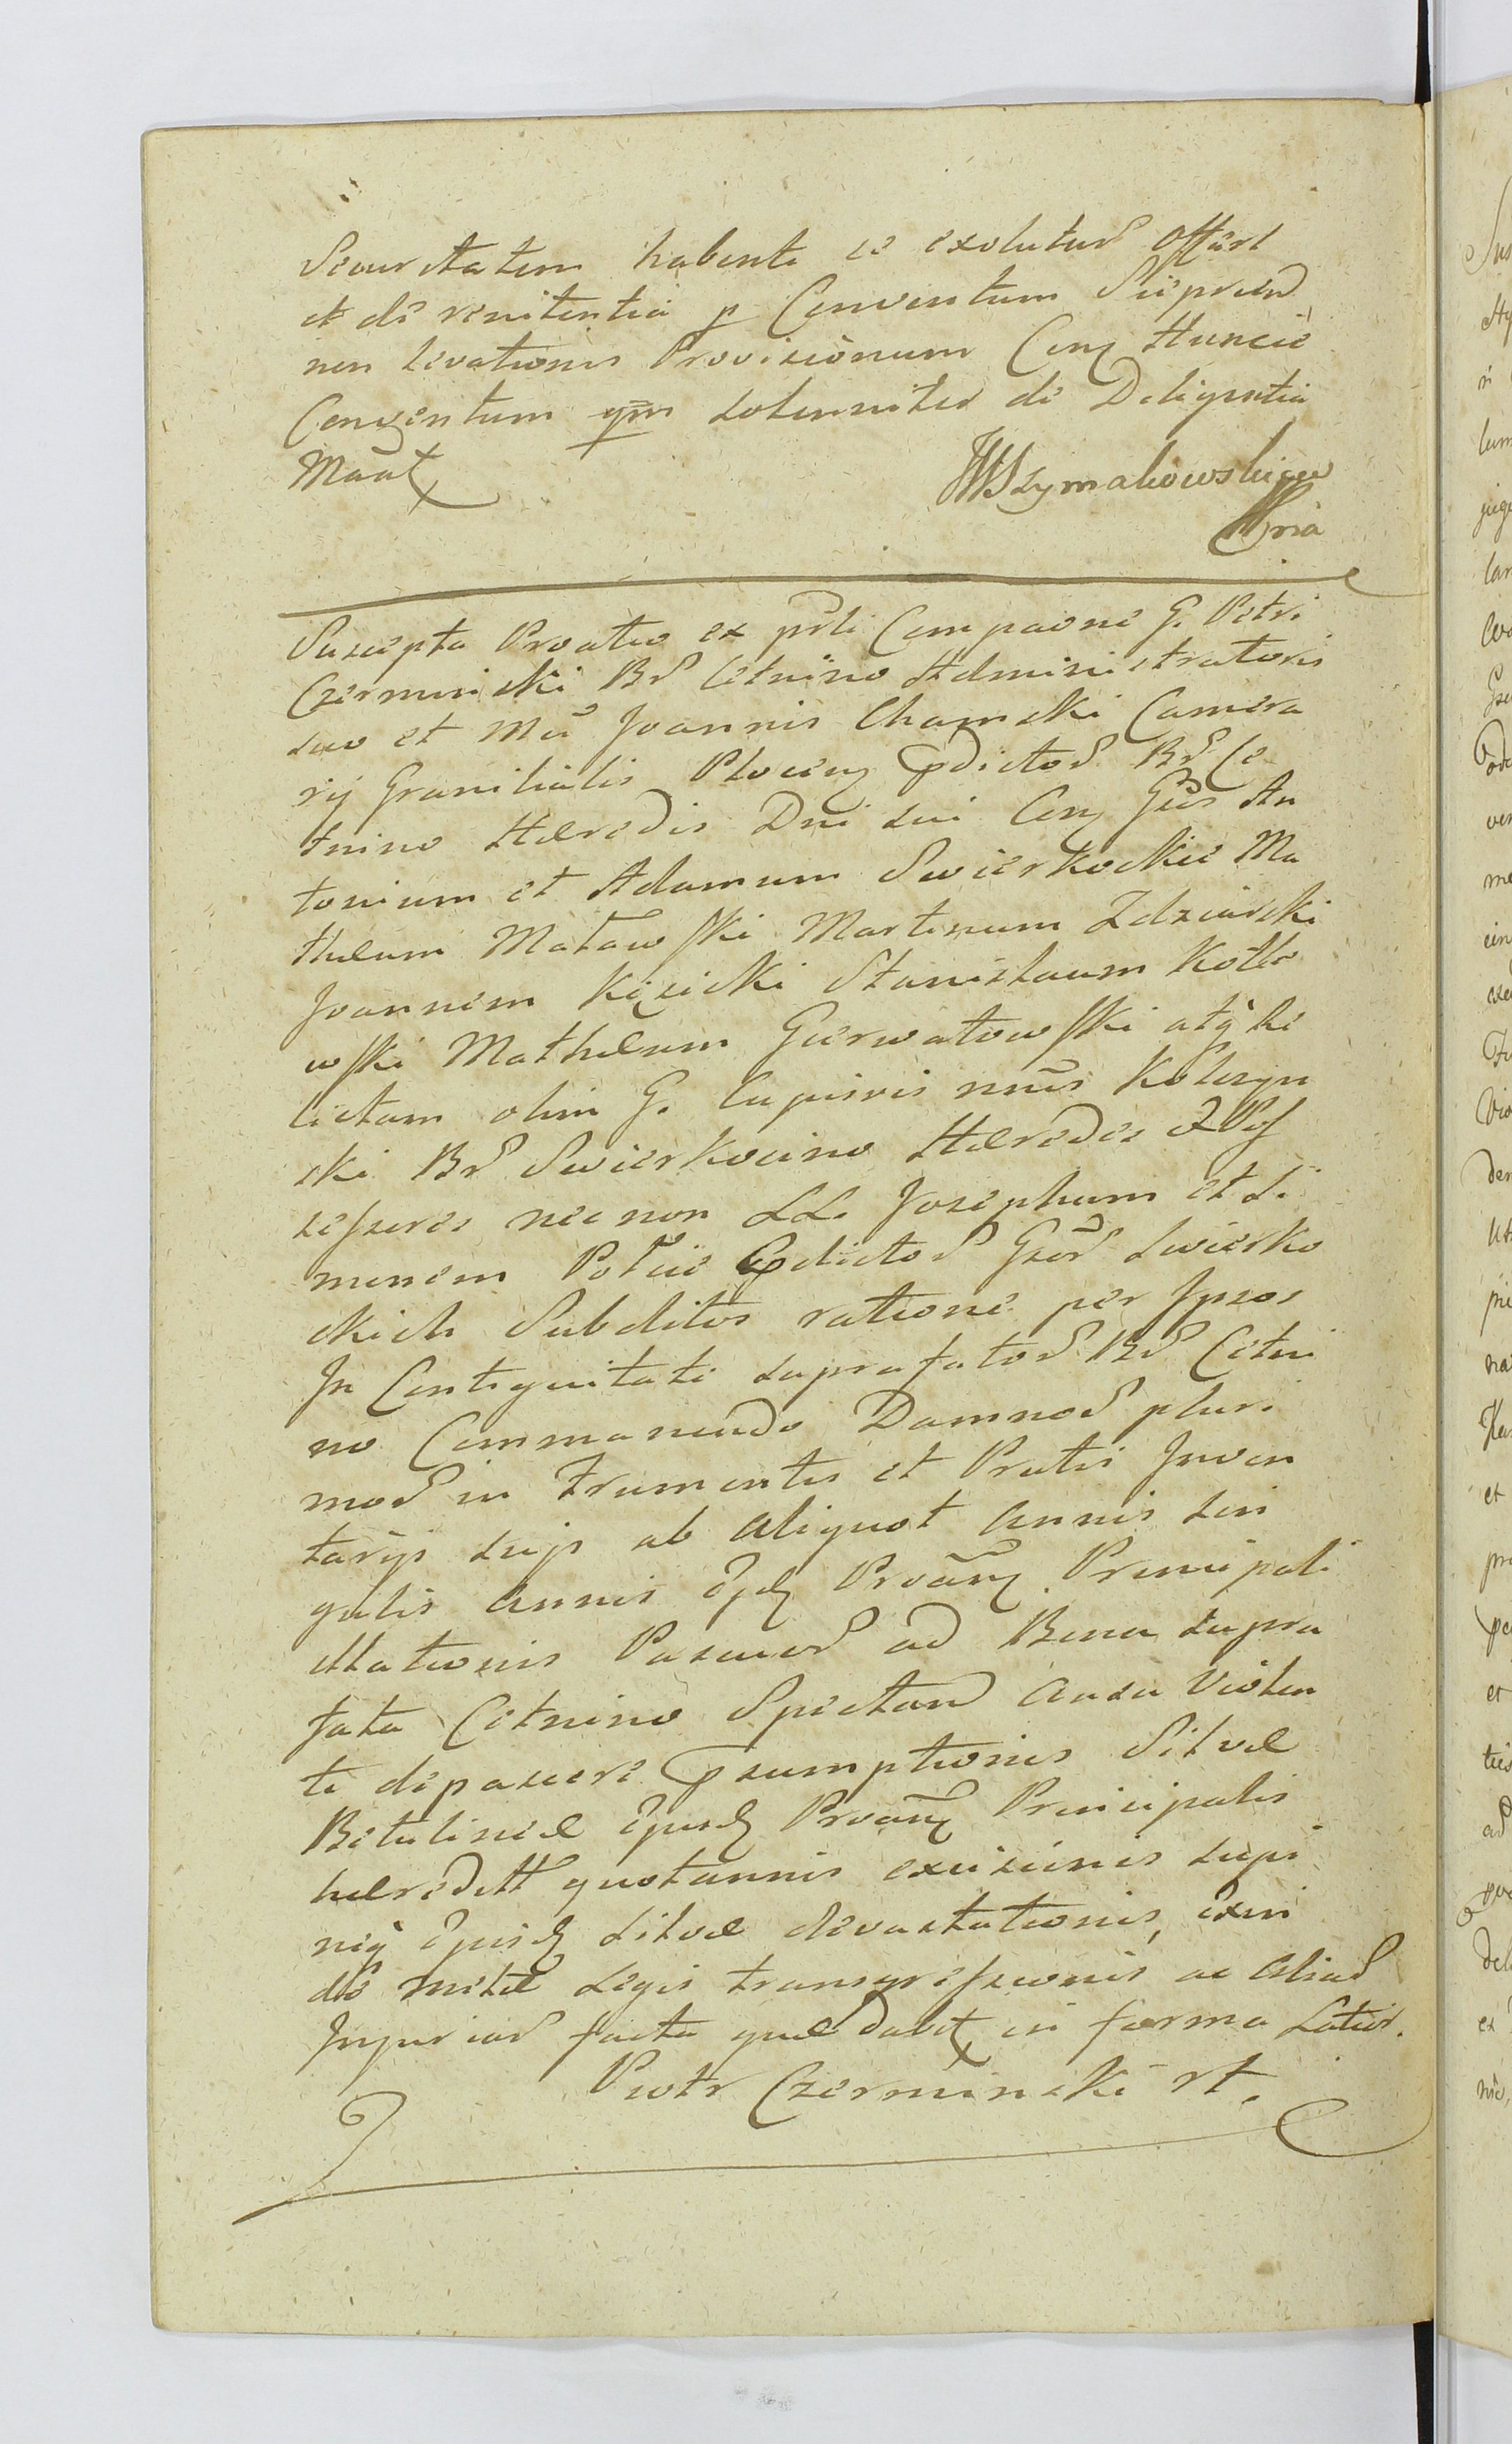 Securitatem habenti se exoluturū offert
et de renitentia p Conventum Suprad
non levationis Provisionum Conq Huncce
Conventum qm solenniter de Deligentia
Maat
WSzymakowski
Suscepta Prvatio ex prli Compaone G. Petri
Czerminski Br Cetnino Administratoris
suo et Mei Joannis Chamski Camera
rij Granitialis Plocen pdictor Br Ce
tnino Hæredis Dni sui Conq Gsos An
tonium et Adamum Swierkockie Ma
thæum Małowski Martinum Zdziarski
Joannem Kęsicki Stanisłaum Kotko
wski Mathæum Gierwatowski atq Re
lictam olim G. Cupivis nnis Kołozyn
ski Br Swierkocino Hæredes & Pos
sessores nec non LL. Josephum et Si
monem Potuie pdictor Gsor Swierko
ckich Subditos ratione per Ipsos
In Contiguitate suprafator Br Cetni
no Commanendo Damnor pluri
mor in Frumentis et Pratis Inven
tarijs suis ab aliquot annis sin
gulis annis Ejsd Prvanq Principali
Illationis Pascuor ad Bona supra
fata Cetnino Spectan ausu Violen
te depascere psumptionis Silvæ
Betulineæ Ejusd Prvanq Principalis
hæreditt quotannis excisionis supi
neq Ejusd Silvæ devastationis, Exin
de metæ Legis transgressionis ac aliar
Injuriar facta quæ dabit in forma Latior.
Piotr Czerminski rt.